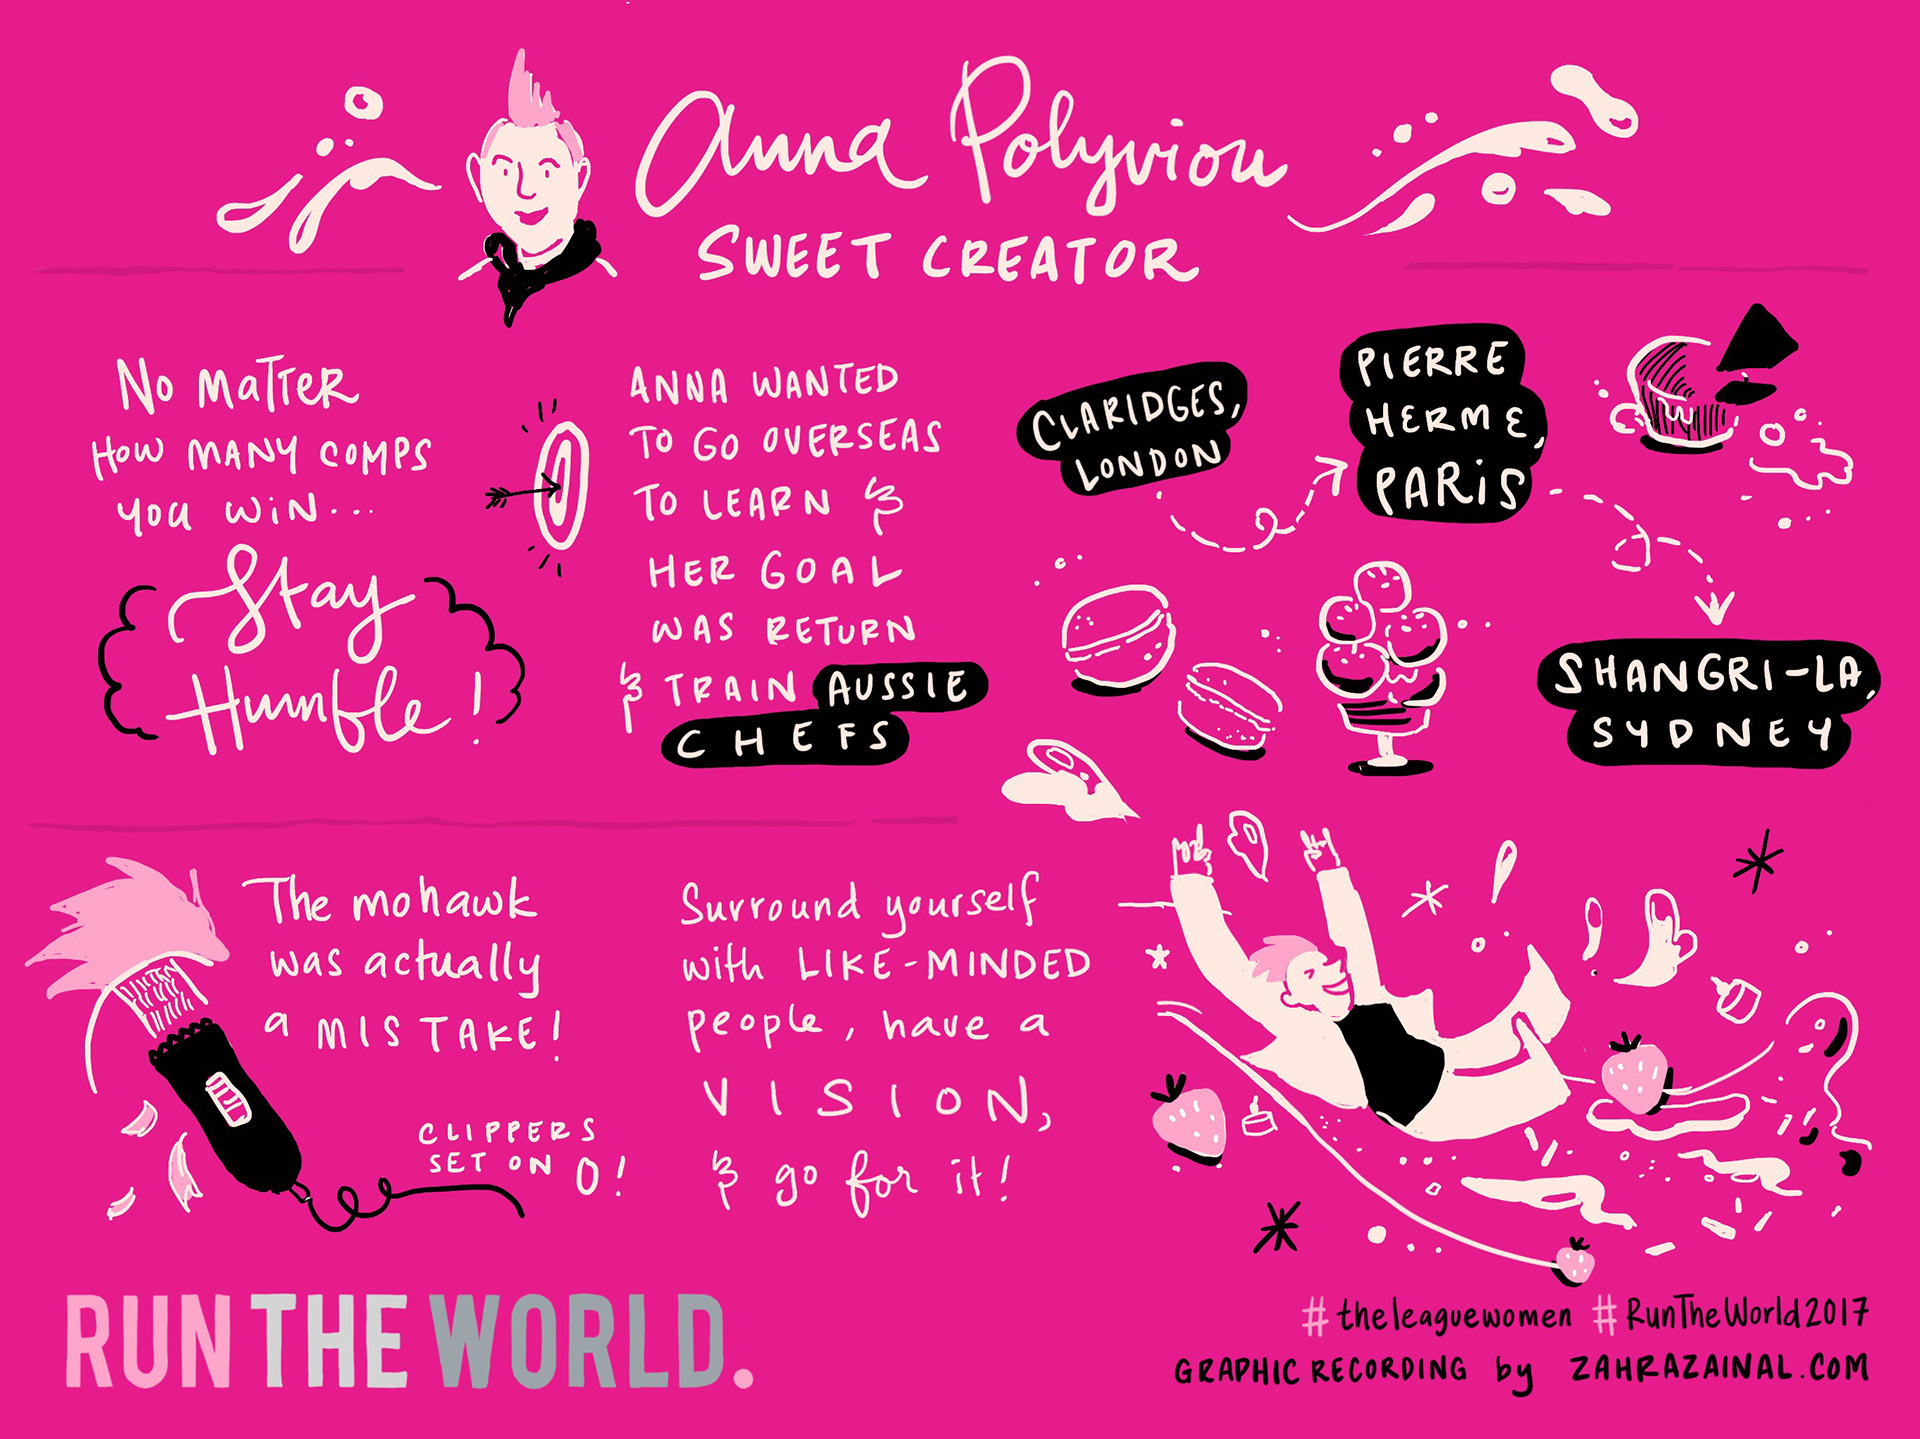 Anna Polyviou
SWEET CREATOR
No MATTER
HOW MANY COMPS
YOU WIN...
Stay
Humble!
ANNA WANTED
TO GO OVERSEAS
TO LEARN &
HER GOAL
WAS RETURN
& TRAIN AUSSIE
CHEFS
CLARIDGES,
LONDON
PIERRE
HERME,
PARIS
SHANGRI-LA,
SYDNEY
The mohawk
was actually
a MISTAKE!
CLIPPERS
SET ON 0!
Surround yourself
with LIKE-MINDED
people, have a
VISION,
& go for it!
RUN THE WORLD.
#theleaguewomen #RunTheWorld2017
GRAPHIC RECORDING by ZAHRAZAINAL.COM